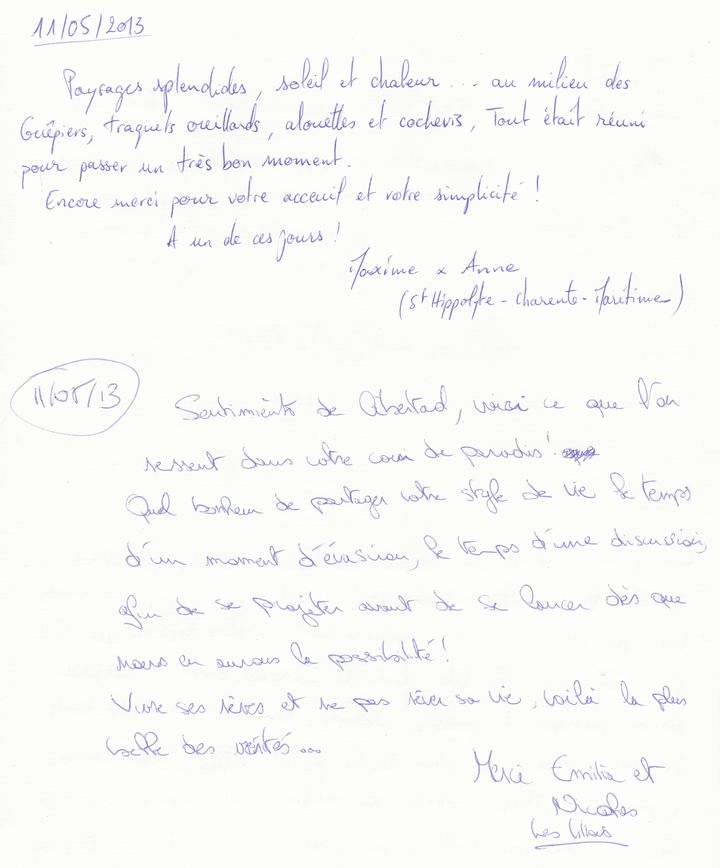 11/05/2013
Paysages splendides, soleil et chaleur... au milieu des
Guêpiers, traquets oreillards, alouettes et cochevis, Tout était réuni
pour passer un très bon moment.
Encore merci pour votre acceuil et votre simplicité !
A un de ces jours !
Maxime & Anne
(St Hippolyte - Charente-Maritime)
11/05/13
Sentimiento de libertad, voici ce que l'on
ressent dans votre coin de paradis !
Quel bonheur de partager votre style de vie le temps
d'un moment d'évasion, le temps d'une discussion,
afin de se projeter avant de se lancer dès que
nous en aurons la possibilité !
Vivre ses rêves et ne pas rêver sa vie, voilà la plus
belle des vérités...
Merci Emilia et
Nicolas
Les